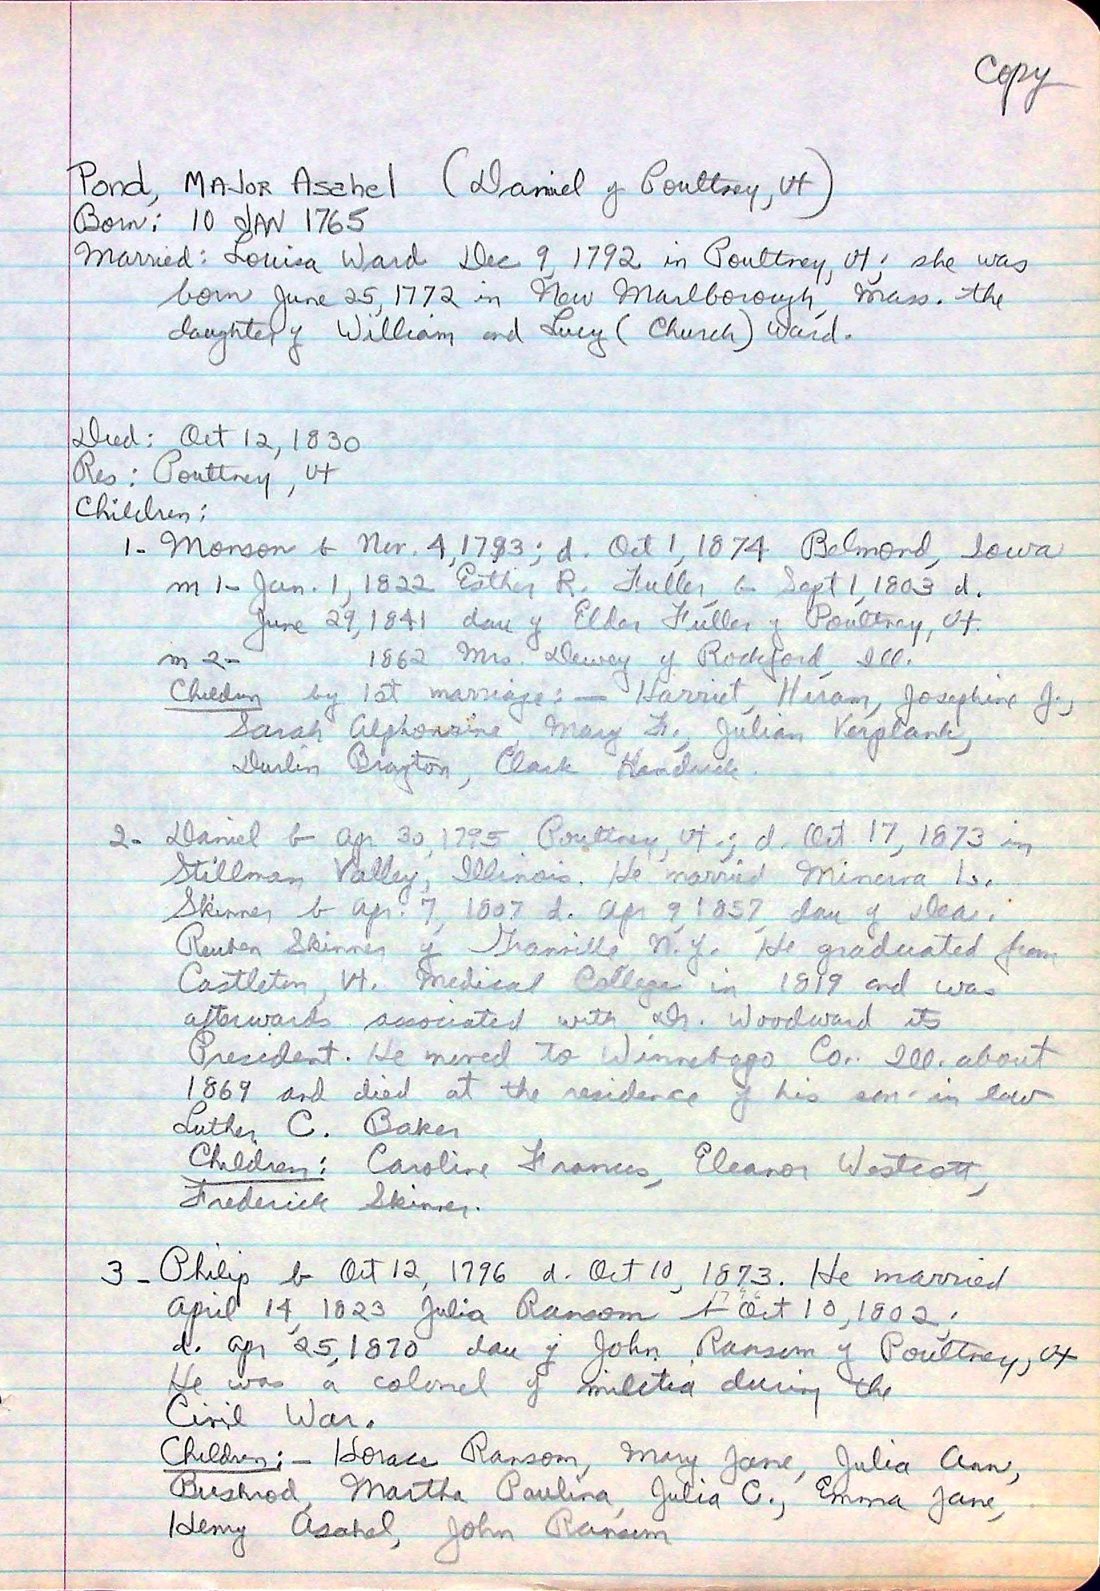 Copy
Pond, MAJOR Asahel (Daniel of Poultney, Vt)
Born: 10 JAN 1765
Married: Louisa Ward Dec 9, 1792 in Poultney, Vt; she was
born June 25, 1772 in New Marlborough, Mass. the
daughter of William and Lucy (Church) Ward.
Died: Oct 12, 1830
Res: Poultney, Vt
Children:
1- Monson b Nov. 4, 1793; d. Oct 1, 1874 Belmond, Iowa
m 1- Jan. 1, 1822 Esther R. Fuller, b Sept 1, 1803 d.
June 29, 1841 dau of Elder Fuller of Poultney, Vt.
m 2- 1862 Mrs. Dewey of Rockford, Ill.
Children by 1st marriage: - Harriet, Hiram, Josephine J.,
Sarah Alphonsine, Mary F., Julian Verplank,
Durlin Brayton, Clark
2- Daniel b Apr 30, 1795 Poultney, Vt.; d. Oct 17, 1873 in
Stillman Valley, Illinois. He married Minerva L.
Skinner b Apr. 7, 1807 d. Apr 9, 1857, dau of Dea.
Reuben Skinner of Granville N.Y. He graduated from
Castleton, Vt. Medical College in 1819 and was
afterwards associated with Dr. Woodward its
President. He moved to Winnebago Co. Ill. about
1869 and died at the residence of his son-in law
Luther C. Baker
Children: Caroline Frances, Eleanor Westcott,
Frederick Skinner.
3- Philip b Oct 12, 1796 d. Oct 10, 1873. He married
April 14, 1823 Julia Ransom b Oct 10, 1802;
d. Apr 25, 1870 dau of John Ransom of Poultney, Vt
He was a colonel of militia during the
Civil War.
Children: - Horace Ransom, Mary Jane, Julia Ann,
Bushrod, Martha Paulina, Julia C., Emma Jane,
Henry Asahel, John Ransom